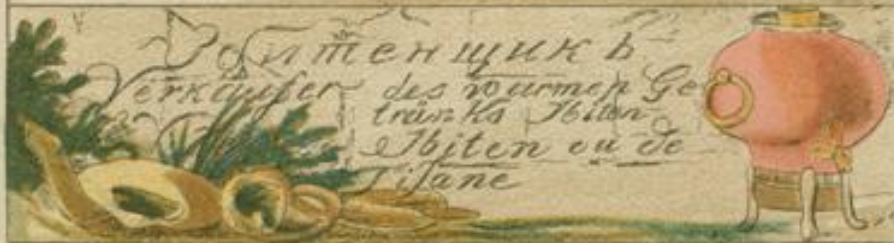 Збитенщикъ
Verkäufer des warmen Ge
tränks Sbiten
Sbiten ou de
Tisane